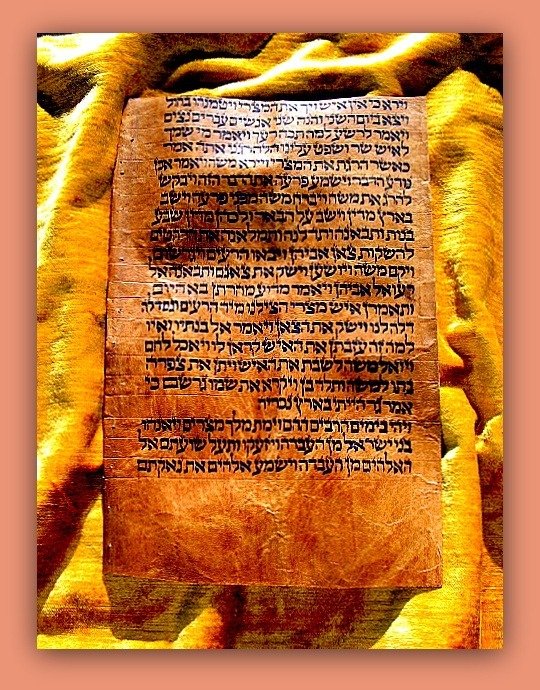 וירא כי אין איש ויך את המצרי ויטמנהו בחול
ויצא ביום השני והנה שני אנשים עברים נצים
ויאמר לרשע למה תכה רעך ויאמר מי שמך
לאיש שר ושפט עלינו הלהרגני אתה אמר
כאשר הרגת את המצרי ויירא משה ויאמר אכן
נודע הדבר וישמע פרעה את הדבר הזה ויבקש
להרג את משה ויברח משה מפני פרעה וישב
בארץ מדין וישב על הבאר ולכהן מדין שבע
בנות ותבאנה ותדלנה ותמלאנה את הרהטים
להשקות צאן אביהן ויבאו הרעים ויגרשום
ויקם משה ויושען וישק את צאנם ותבאנה אל
רעואל אביהן ויאמר מדוע מהרתן בא היום
ותאמרן איש מצרי הצילנו מיד הרעים וגם דלה
דלה לנו וישק את הצאן ויאמר אל בנתיו ואיו
למה זה עזבתן את האיש קראן לו ויאכל לחם
ויואל משה לשבת את האיש ויתן את צפרה
בתו למשה ותלד בן ויקרא את שמו גרשם כי
אמר גר הייתי בארץ נכריה
ויהי בימים הרבים ההם וימת מלך מצרים ויאנחו
בני ישראל מן העבדה ויזעקו ותעל שועתם אל
האלהים מן העבדה וישמע אלהים את נאקתם